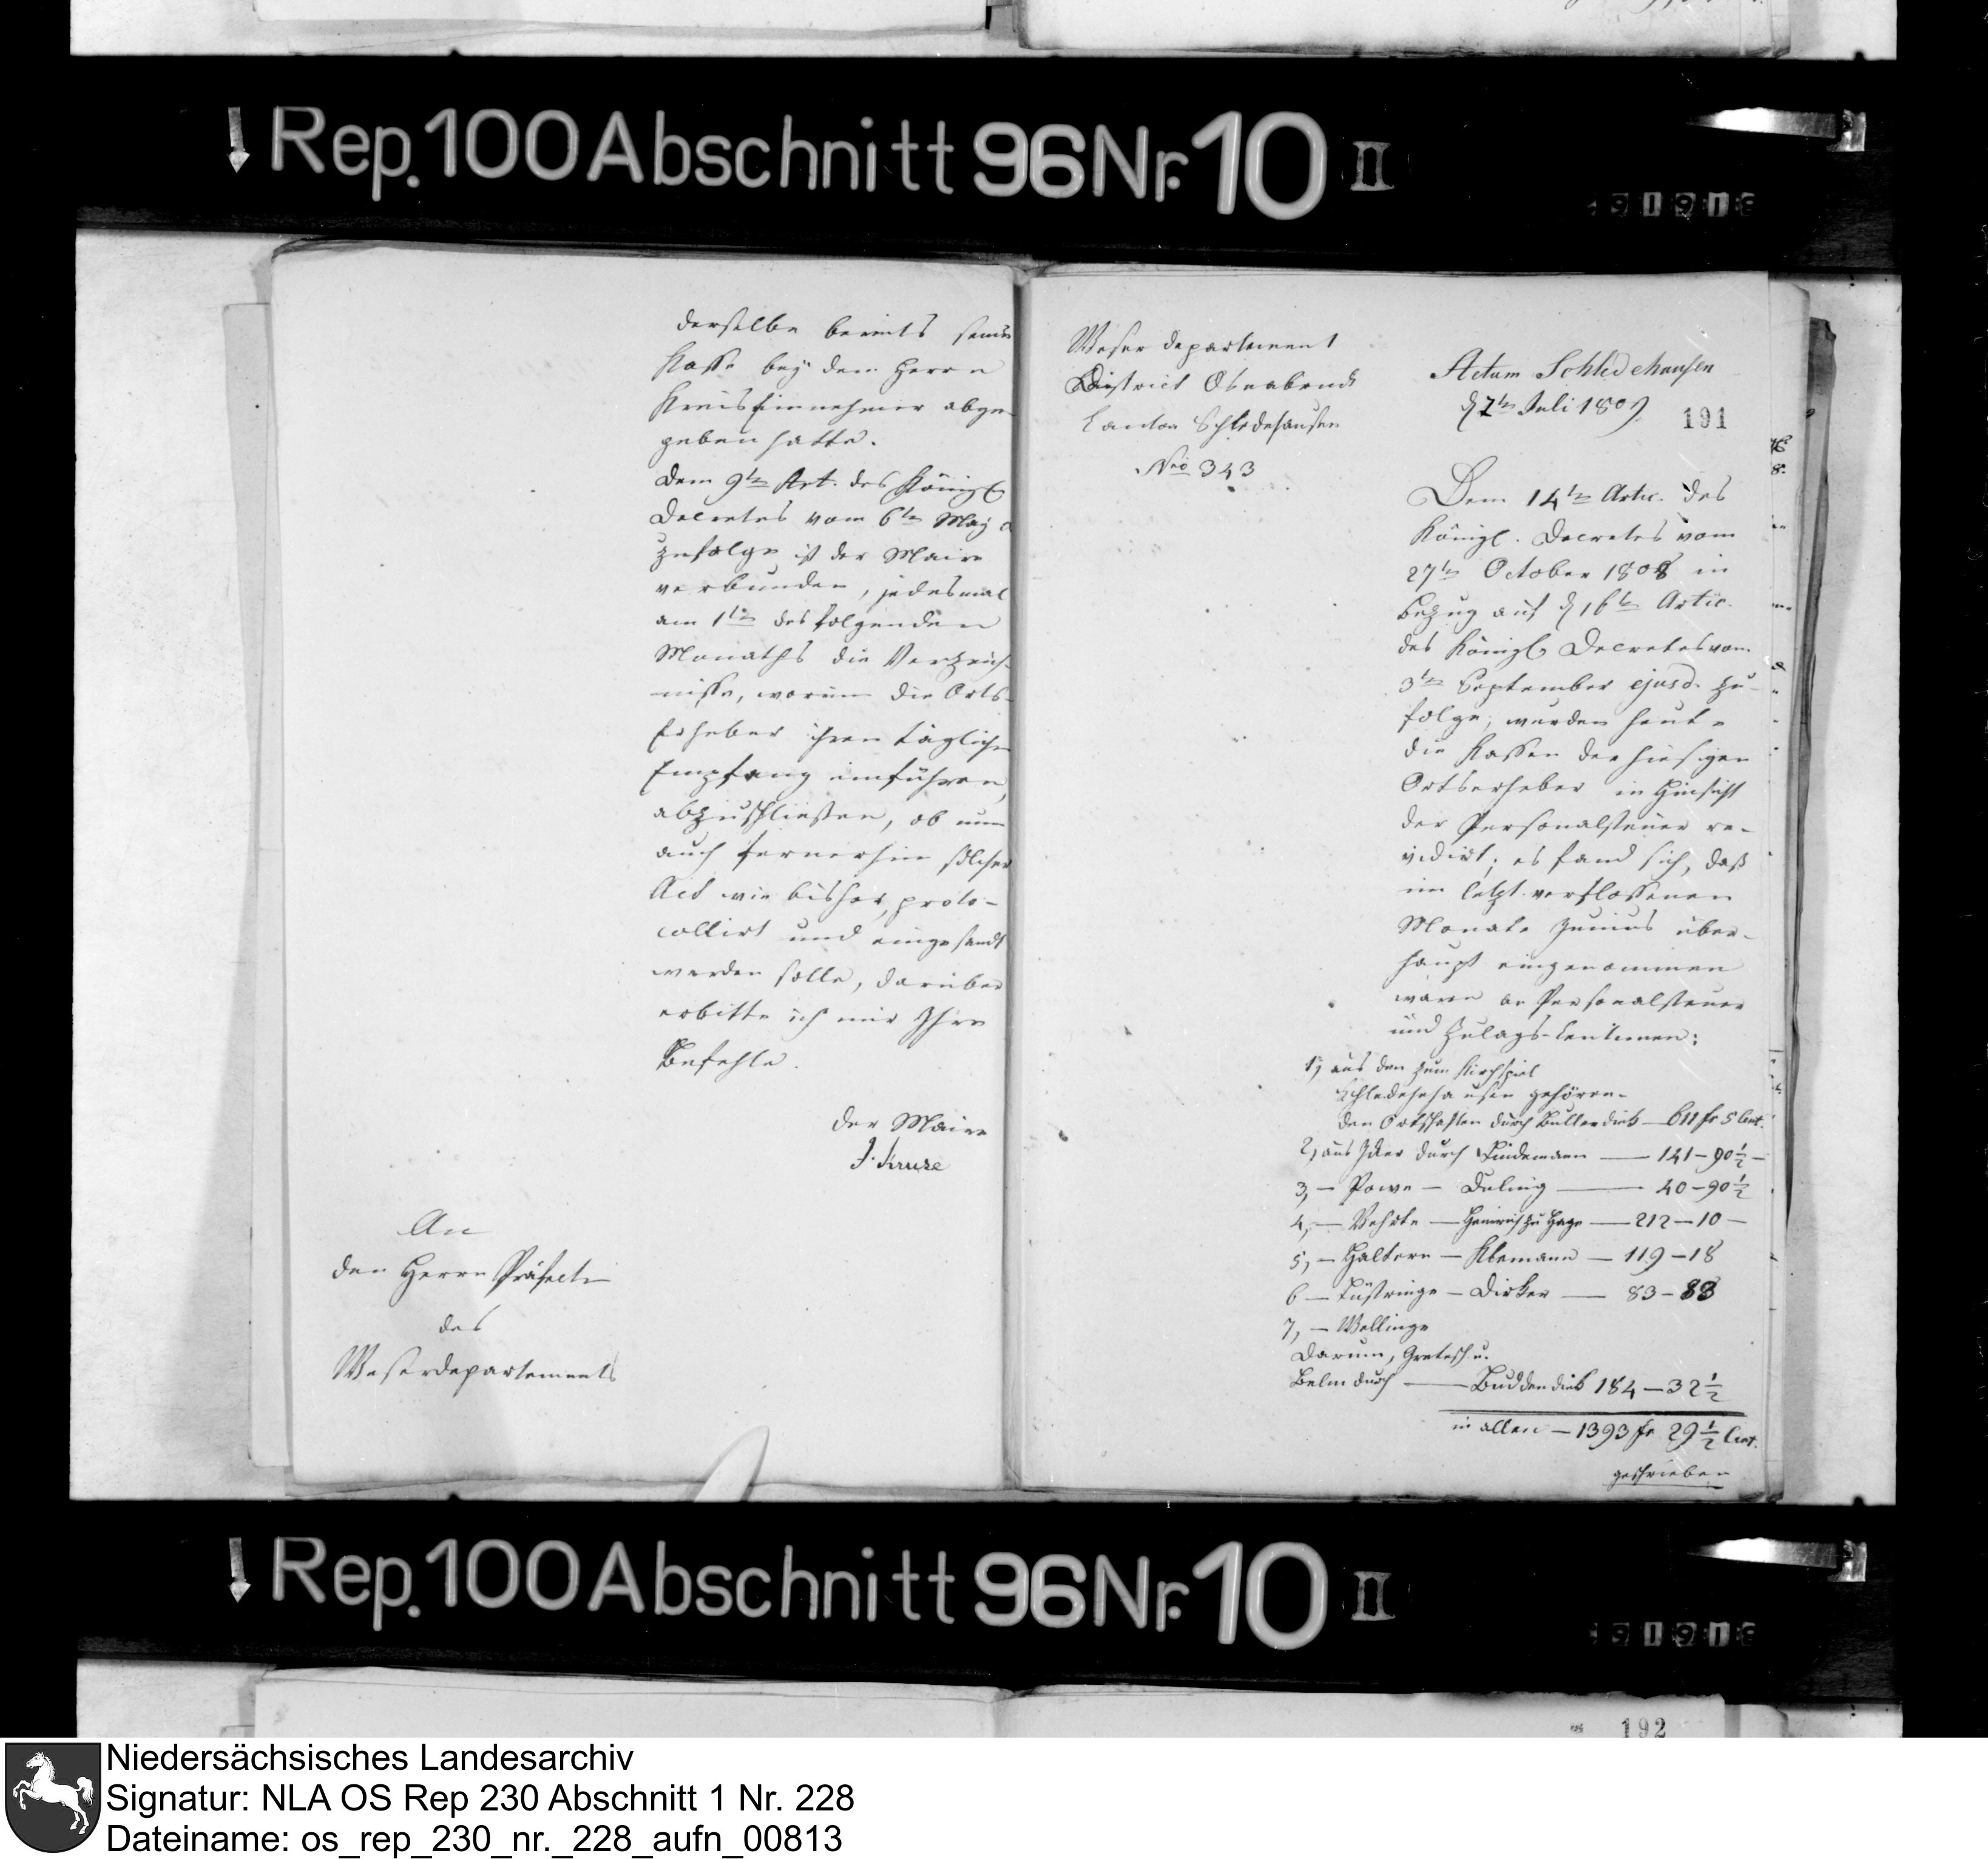 Rep. 100 Abschnitt 96 Nr. 10 II
derselbe bereits seine
Kasse bey dem Herrn
Kreiseinnehmer abge-
geben hatte.
Dem 9ten Art. des Königl.
Decretes vom 6ten May
zufolge ist der Maire
verbunden, jedesmal
am 1ten des folgenden
Monaths die Verzeich-
nisse, worinn die Orts-
Erheber ihren täglichen
Empfang einführen,
abzuschließen, ob nun
auch fernerhin solcher
Act wie bisher, proto-
collirt und eingesandt
werden solle, darüber
erbitte ich mir Ihre
Befehle.
Der Maire
J. Kruse
An
den Herrn Präfecten
des
Weserdepartements
Weser departement
District Osnabrück
Canton Schledehausen
Nro 343
Actum Schledehausen
d 2ten Juli 1809
191
Dem 14ten Artic. des
Königl. Decretes vom
27ten October 1808 in
Bezug auf d 16ten Artic.
des Königl. Decretes vom
3ten September ejusd. zu-
folge, wurden heute
die Kassen der hiesigen
Ortserheber in Hinsicht
der Personalsteuer re-
vidirt; es fand sich, daß
im letzt verflossenen
Monate Junius über-
haupt eingenommen
waren an Personalsteuer
und Zulags-Centimen:
1, aus den zum Kirchspiel
Schledehausen gehören-
den Ortschaften durch Bullerdiek — 611 fr 5 Cent.
2, aus Jcker durch Lindemann — 141 – 90 ½ –
3, — Powe — Duling — 40 – 90 ½
4, — Vehrte — Heinrich zu Hage — 212 – 10 –
5, — Haltern — Klemann — 119 – 18
6 — Lüstringe — Dirker — 83 – 83
7, — Wellinge
Darum, Gretesch u.
Belm durch — Buddendiek 184 – 32 ½
in allen — 1393 fr 29 ½ Cent.
geschrieben
Rep. 100 Abschnitt 96 Nr. 10 II
192
Niedersächsisches Landesarchiv
Signatur: NLA OS Rep 230 Abschnitt 1 Nr. 228
Dateiname: os_rep_230_nr._228_aufn_00813